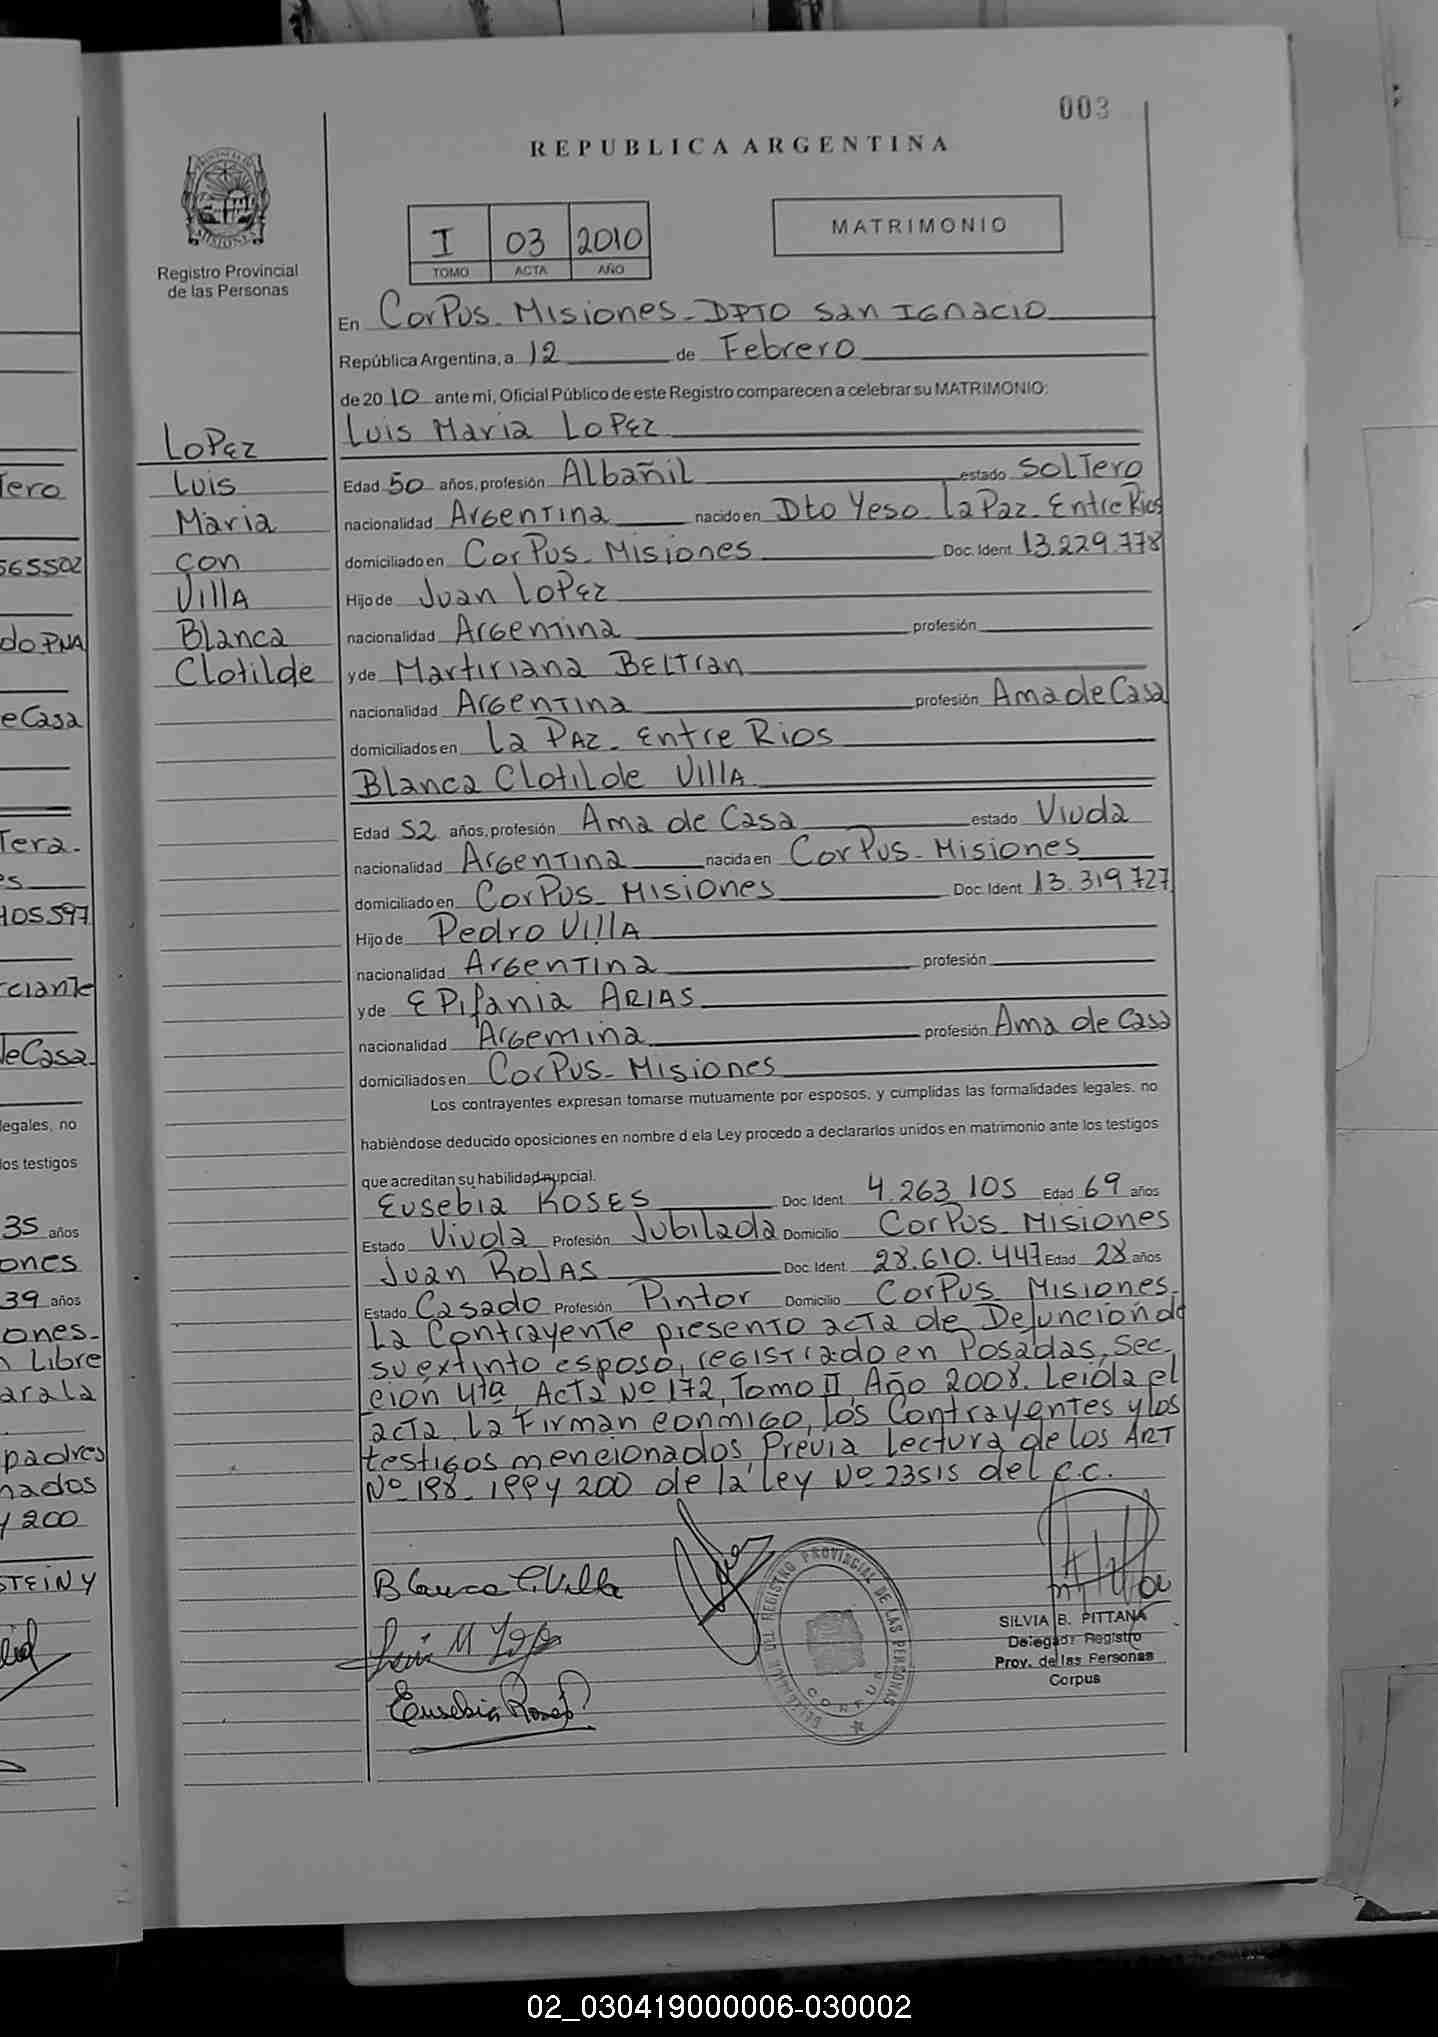 003
REPUBLICA ARGENTINA
PROVINCIA DE MISIONES
Registro Provincial
de las Personas
I 03 2010
TOMO ACTA AÑO
MATRIMONIO
En CorPus - Misiones - DPTO San IGnacio
República Argentina, a 12 de Febrero
de 2010 ante mi, Oficial Público de este Registro comparecen a celebrar su MATRIMONIO:
Luis Maria LoPez
Edad 50 años, profesión Albañil estado SolTero
nacionalidad ArGenTina nacido en Dto Yeso - La Paz - Entre Rios
domiciliado en CorPus - Misiones Doc. Ident. 13.229.778
Hijo de Juan LoPez
nacionalidad ArGenTina profesión
y de Martiriana BelTran
nacionalidad ArGenTina profesión Ama de Casa
domiciliados en La Paz - Entre Rios
Blanca Clotilde VillA
Edad 52 años, profesión Ama de Casa estado Viuda
nacionalidad ArGenTina nacida en CorPus - Misiones
domiciliado en CorPus - Misiones Doc. Ident 13.319.727
Hijo de Pedro VillA
nacionalidad ArGenTina profesión
y de EPifania ARIAS
nacionalidad ArGenTina profesión Ama de Casa
domiciliados en CorPus - Misiones
Los contrayentes expresan tomarse mutuamente por esposos, y cumplidas las formalidades legales, no
habiéndose deducido oposiciones en nombre d ela Ley procedo a declararlos unidos en matrimonio ante los testigos
que acreditan su habilidad nupcial.
Eusebia ROSES Doc. Ident. 4.263.105 Edad 69 años
Estado Viuda Profesión Jubilada Domicilio CorPus - Misiones
Juan RoJAS Doc. Ident. 28.610.447 Edad 28 años
Estado Casado Profesión Pintor Domicilio CorPus - Misiones.
La ContrayenTe presento acta de Defuncion de
su extinto esposo, reGistrado en Posadas, Sec-
cion 4ta, ActA Nº 172, Tomo II, Año 2008. Leida el
acta, La Firman conmiGo, los Contrayentes y los
testiGos mencionados, Previa Lectura de los ART
Nº 198 - 199 y 200 de la Ley Nº 23515 del C.C.
LoPez
Luis
Maria
con
VillA
Blanca
Clotilde
Blanca C. Villa
Luis M Lopez
Eusebia Roses
REGISTRO PROVINCIAL DE LAS PERSONAS
CORPUS
SILVIA B. PITTANA
Delegada Registro
Prov. de las Personas
Corpus
Tero
565502
do PNA
e Casa
Tera.
es
405597
rciante
de Casa.
legales, no
los testigos
35 años
ones
39 años
ones-
Libre
para la
padres
nados
y 200
STEIN y
02_030419000006-030002